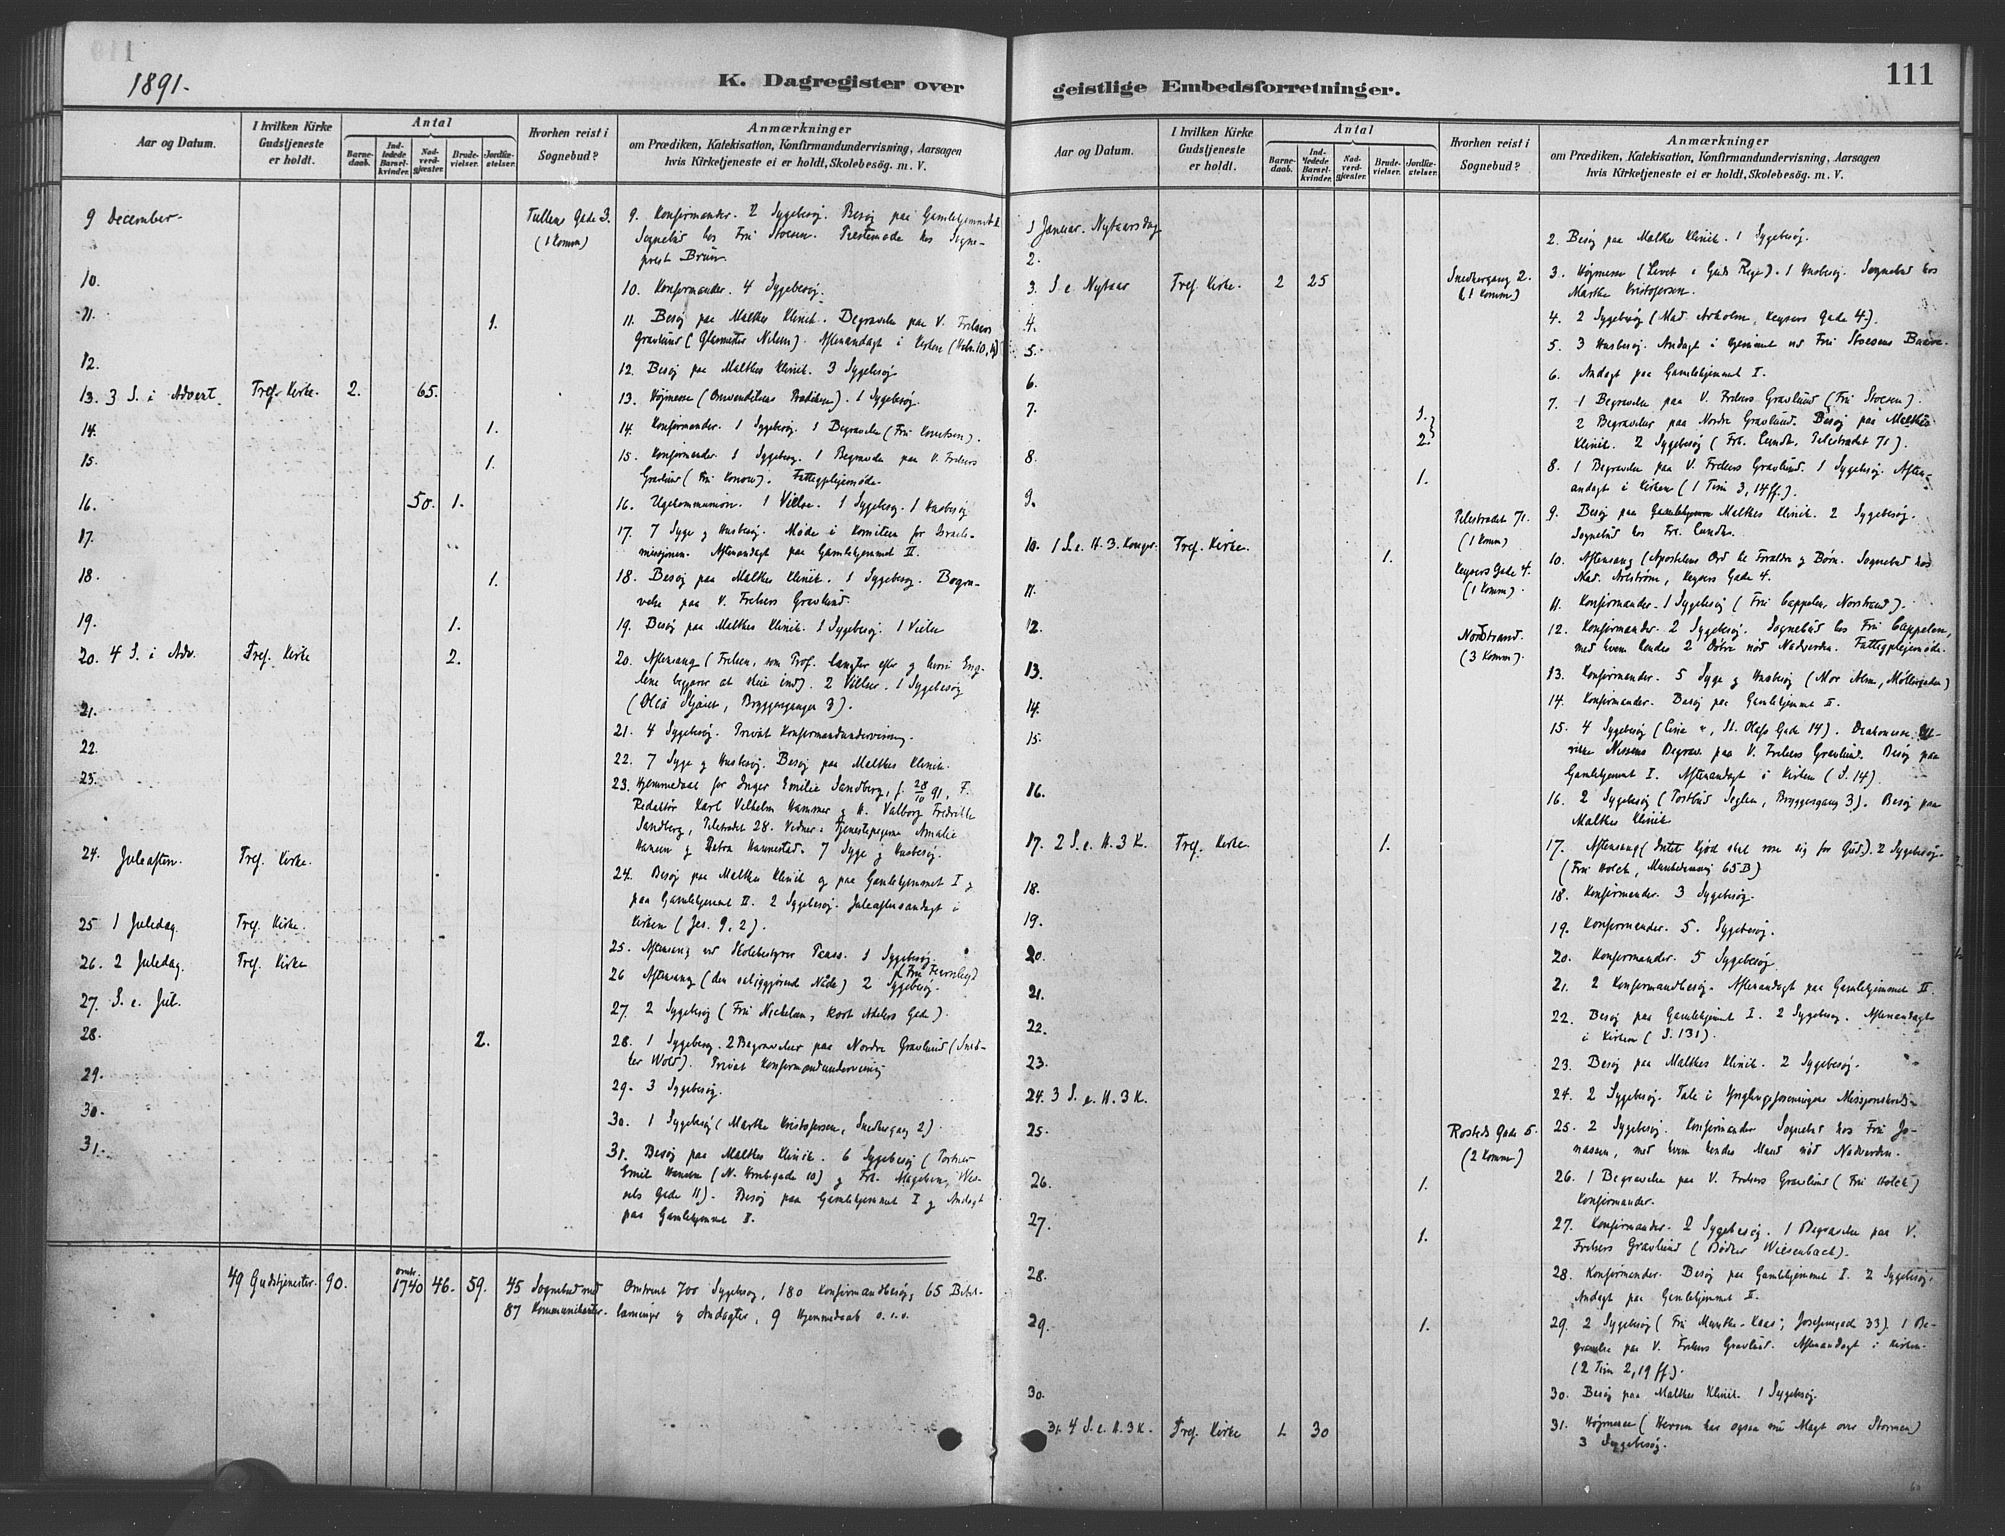 1891.
K. Dagregister over
Aar og Datum.
I hvilken Kirke Gudstjeneste er holdt.
Antal
Barnedaab.
Indledede Barselkvinder.
Nadverdgjester.
Brudevielser.
Jordfæstelser.
Hvorhen reist i Sognebud?
Anmærkninger
om Prædiken, Katekisation, Konfirmandundervisning, Aarsagen
hvis Kirketjeneste ei er holdt, Skolebesög. m. V.
9 December. Tullens Gade 3. (1 Komm) 9. Konfirmander. 2 Sygebesøg. Besøg paa Gamlehjemmet I.
Sognebud hos Fru Stoesen. Prestemøde hos Sogne-
prest Bruun.
10. 10. Konfirmander. 4 Sygebesøg.
11. 1. 11. Besøg paa Malthes Klinik. Begravelse paa V. Frelsers
Gravlund (Glasmester Nielsen). Aftenandagt i Kirken
12. 12. Besøg paa Malthes Klinik. 3 Sygebesøg
13. 3 S. i Advent. Tref. Kirke. 2. 65. 13. Højmesse (Omvendelsens Prædiken). 1 Sygebesøg.
14. 1. 14. Konfirmander. 1 Sygebesøg. 1 Begravelse (Fru Knutsen).
15. 1. 15. Konfirmander. 1 Sygebesøg. 1 Begravelse paa V. Frelsers
Gravlund (Fru Konow). Fattigplejemøde.
16. 50. 1. 16. Ugekommunion. 1 Vielse. 1 Sygebesøg. 1 Husbesøg
17. 17. 7 Syge og Husbesøg. Møde i Komiteen for Israels-
missionen. Aftenandagt paa Gamlehjemmet II.
18. 1. 18. Besøg paa Malthes Klinik. 1 Sygebesøg. Begra-
velse paa V. Frelsers Gravlund.
19. 1. 19. Besøg paa Malthes Klinik. 1 Sygebesøg. 1 Vielse
20. 4 S. i Adv. Tref. Kirke 2. 20. Aftensang (Frelsen, som Prof. langter efter og hvori Eng-
lene begjærer at skue ind). 2 Vielser. 1 Sygebesøg
(Bryggergangen 3).
21. 21. 4 Sygebesøg. Privat Konfirmandundervisning.
22. 22. 7 Syge og Husbesøg. Besøg paa Malthes Klinik.
23. 23. Hjemmedaab for Inger Emilie Sandberg, f. 28/10 91, F.
Redaktør Karl Vilhelm Hammer og H. Valborg Fredrikke
Sandberg, Pilestrædet 28. Vidner: Tjenestepigerne Amalie
Hansen og Petra Hannestad. 7 Syge og Husbesøg.
24. Juleaften. Tref. Kirke. 24. Besøg paa Malthes Klinik og paa Gamlehjemmet I og
paa Gamlehjemmet II. 2 Sygebesøg. Juleaftensandagt i
Kirken (Jes. 9, 2).
25 1 Juledag. Tref. Kirke. 25. Aftensang ved Skolebestyrer 1 Sygebesøg.
26. 2 Juledag. Tref. Kirke 26 Aftensang (den saliggjørende Nåde) 2 Sygebesøg.
27. S. e. Jul. 27. 2 Sygebesøg (Fru Nickelsen, Kort Adelers Gade).
28. 2. 28. 1 Sygebesøg. 2 Begravelser paa Nordre Gravlund (
Wold). Privat Konfirmandundervisning
29. 29. 3 Sygebesøg.
30. 30. 1 Sygebesøg (Marthe Kristofersen, Snedkergang 2).
31. 31. Besøg paa Malthes Klinik. 6 Sygebesøg (Portner
Emil Hansen (N. 10) og Frk. Magelsen, Wes-
sels Gade 11). Besøg paa Gamlehjemmet I og Andagt
paa Gamlehjemmet II.
49 Gudstjenester. 90. omtr. 1740 46. 59. 45 Sognebud med Omtrent 700 Sygebesøg, 180 Konfirmandbesøg, 65 Bibel-
87 Kommunikanter. læsninger og Andagter, 9 Hjemmedaab o.s.v.
geistlige Embedsforretninger.
111
Aar og Datum.
I hvilken Kirke Gudstjeneste er holdt.
Antal
Barnedaab.
Indledede Barselkvinder.
Nadverdgjester.
Brudevielser.
Jordfæstelser.
Hvorhen reist i Sognebud?
Anmærkninger
om Prædiken, Katekisation, Konfirmandundervisning, Aarsagen
hvis Kirketjeneste ei er holdt, Skolebesög. m. V.
1 Januar. Nytaarsdag
2. 2. Besøg paa Malthes Klinik. 1 Sygebesøg.
3. S. e. Nytaar Tref. Kirke. 2 25 Snedkergang 2. (1 Komm) 3. Højmesse (Livet i Guds Rige). 1 Husbesøg. Sognebud hos
Marthe Kristofersen.
4. 4. 2 Sygebesøg (Mad. Keysers Gade 4.).
5. 5. 3 Husbesøg. Andagt i Hjemmet ved Fru Stoesens Baare.
6. 6. Andagt paa Gamlehjemmet I.
7. 1. 2. 7. 1 Begravelse paa V. Frelsers Gravlund (Fru Stoesen).
2 Begravelser paa Nordre Gravlund. Besøg paa Malthes
Klinik. 2 Sygebesøg (Frk. Lundh, Pilestrædet 71).
8. 1. 8. 1 Begravelse paa V. Frelsers Gravlund. 1 Sygebesøg. Aften-
andagt i Kirken (1 Tim 3, 14 ff.).
9. Pilestrædet 71. (1 Komm) 9. Besøg paa Malthes Klinik. 2 Sygebesøg.
Sognebud hos Frk. Lundh.
10. 1 S. e. H. 3. Konger. Tref. Kirke. 1. Keysers Gade 4. (1 Komm). 10. Aftensang (Apostelens Ord til Forældre og Børn. Sognebud hos
Mad. Keysers Gade 4.
11. 11. Konfirmander. 1 Sygebesøg (Fru Cappelen, Norstrand).
12. Nordstrand. (3 Komm). 12. Konfirmander. 2 Sygebesøg. Sognebud hos Fru Cappelen,
med hvem hendes 2 Døtre nød Nadverden. Fattigplejemøde.
13. 13. Konfirmander. 5 Syge og Husbesøg (Mor Alm, Møllergaden)
14. 14. Konfirmander. Besøg paa Gamlehjemmet II.
15. 15. 4 Sygebesøg (St. Olafs Gade 14). Diakonisse
Nissens Begrav. paa V. Frelsers Gravlund. Besøg paa
Gamlehjemmet I. Aftenandagt i Kirken (S. 14).
16. 16. 2 Sygebesøg (Postbud Seglen, Bryggergang 3). Besøg paa
Malthes Klinik
17. 2 S. e. H. 3 K. Tref. Kirke. 1. 17. Aftensang (Intet Kjød skal rose sig for Gud). 2 Sygebesøg.
(Fru Holck, Munkedamsvej 65 B)
18. 18. Konfirmander. 3 Sygebesøg.
19. 19. Konfirmander. 5. Sygebesøg.
20. 20. Konfirmander. 5 Sygebesøg.
21. 21. 2 Konfirmandbesøg. Aftenandagt paa Gamlehjemmet II.
22. 22. Besøg paa Gamlehjemmet I. 2 Sygebesøg. Aftenandagt
i Kirken (S. 131).
23. 23. Besøg paa Malthes Klinik. 2 Sygebesøg.
24. 3 S. e. H. 3 K. 24. 2 Sygebesøg. Tale i Ynglingeforeningens Missionskreds
25. Rosteds Gade 5. (2 Komm) 25. 2 Sygebesøg. Konfirmander. Sognebud hos Fru Jo-
massen, med hvem hendes Mand nød Nadverden.
26. 1. 26. 1 Begravelse paa V. Frelsers Gravlund (Fru Holck)
Konfirmander.
27. 1. 27. Konfirmander. 2 Sygebesøg. 1 Begravelse paa V.
Frelsers Gravlund (Bødker Wiesenbach).
28. 28. Konfirmander. Besøg paa Gamlehjemmet I. 2 Sygebesøg.
Andagt paa Gamlehjemmet II.
29. 1. 29. 2 Sygebesøg (Fru Munthe-Kaas, Josefinegade 33). 1 Be-
gravelse paa V. Frelsers Gravlund. Aftenandagt i Kirken.
(2 Tim 2, 19 ff).
30. 30. Besøg paa Malthes Klinik. 1 Sygebesøg.
31. 4 S. e. H. 3 K. Tref. Kirke 30 31. Højmesse (Herren har ogsaa nu Magt over Stormen)
3 Sygebesøg.